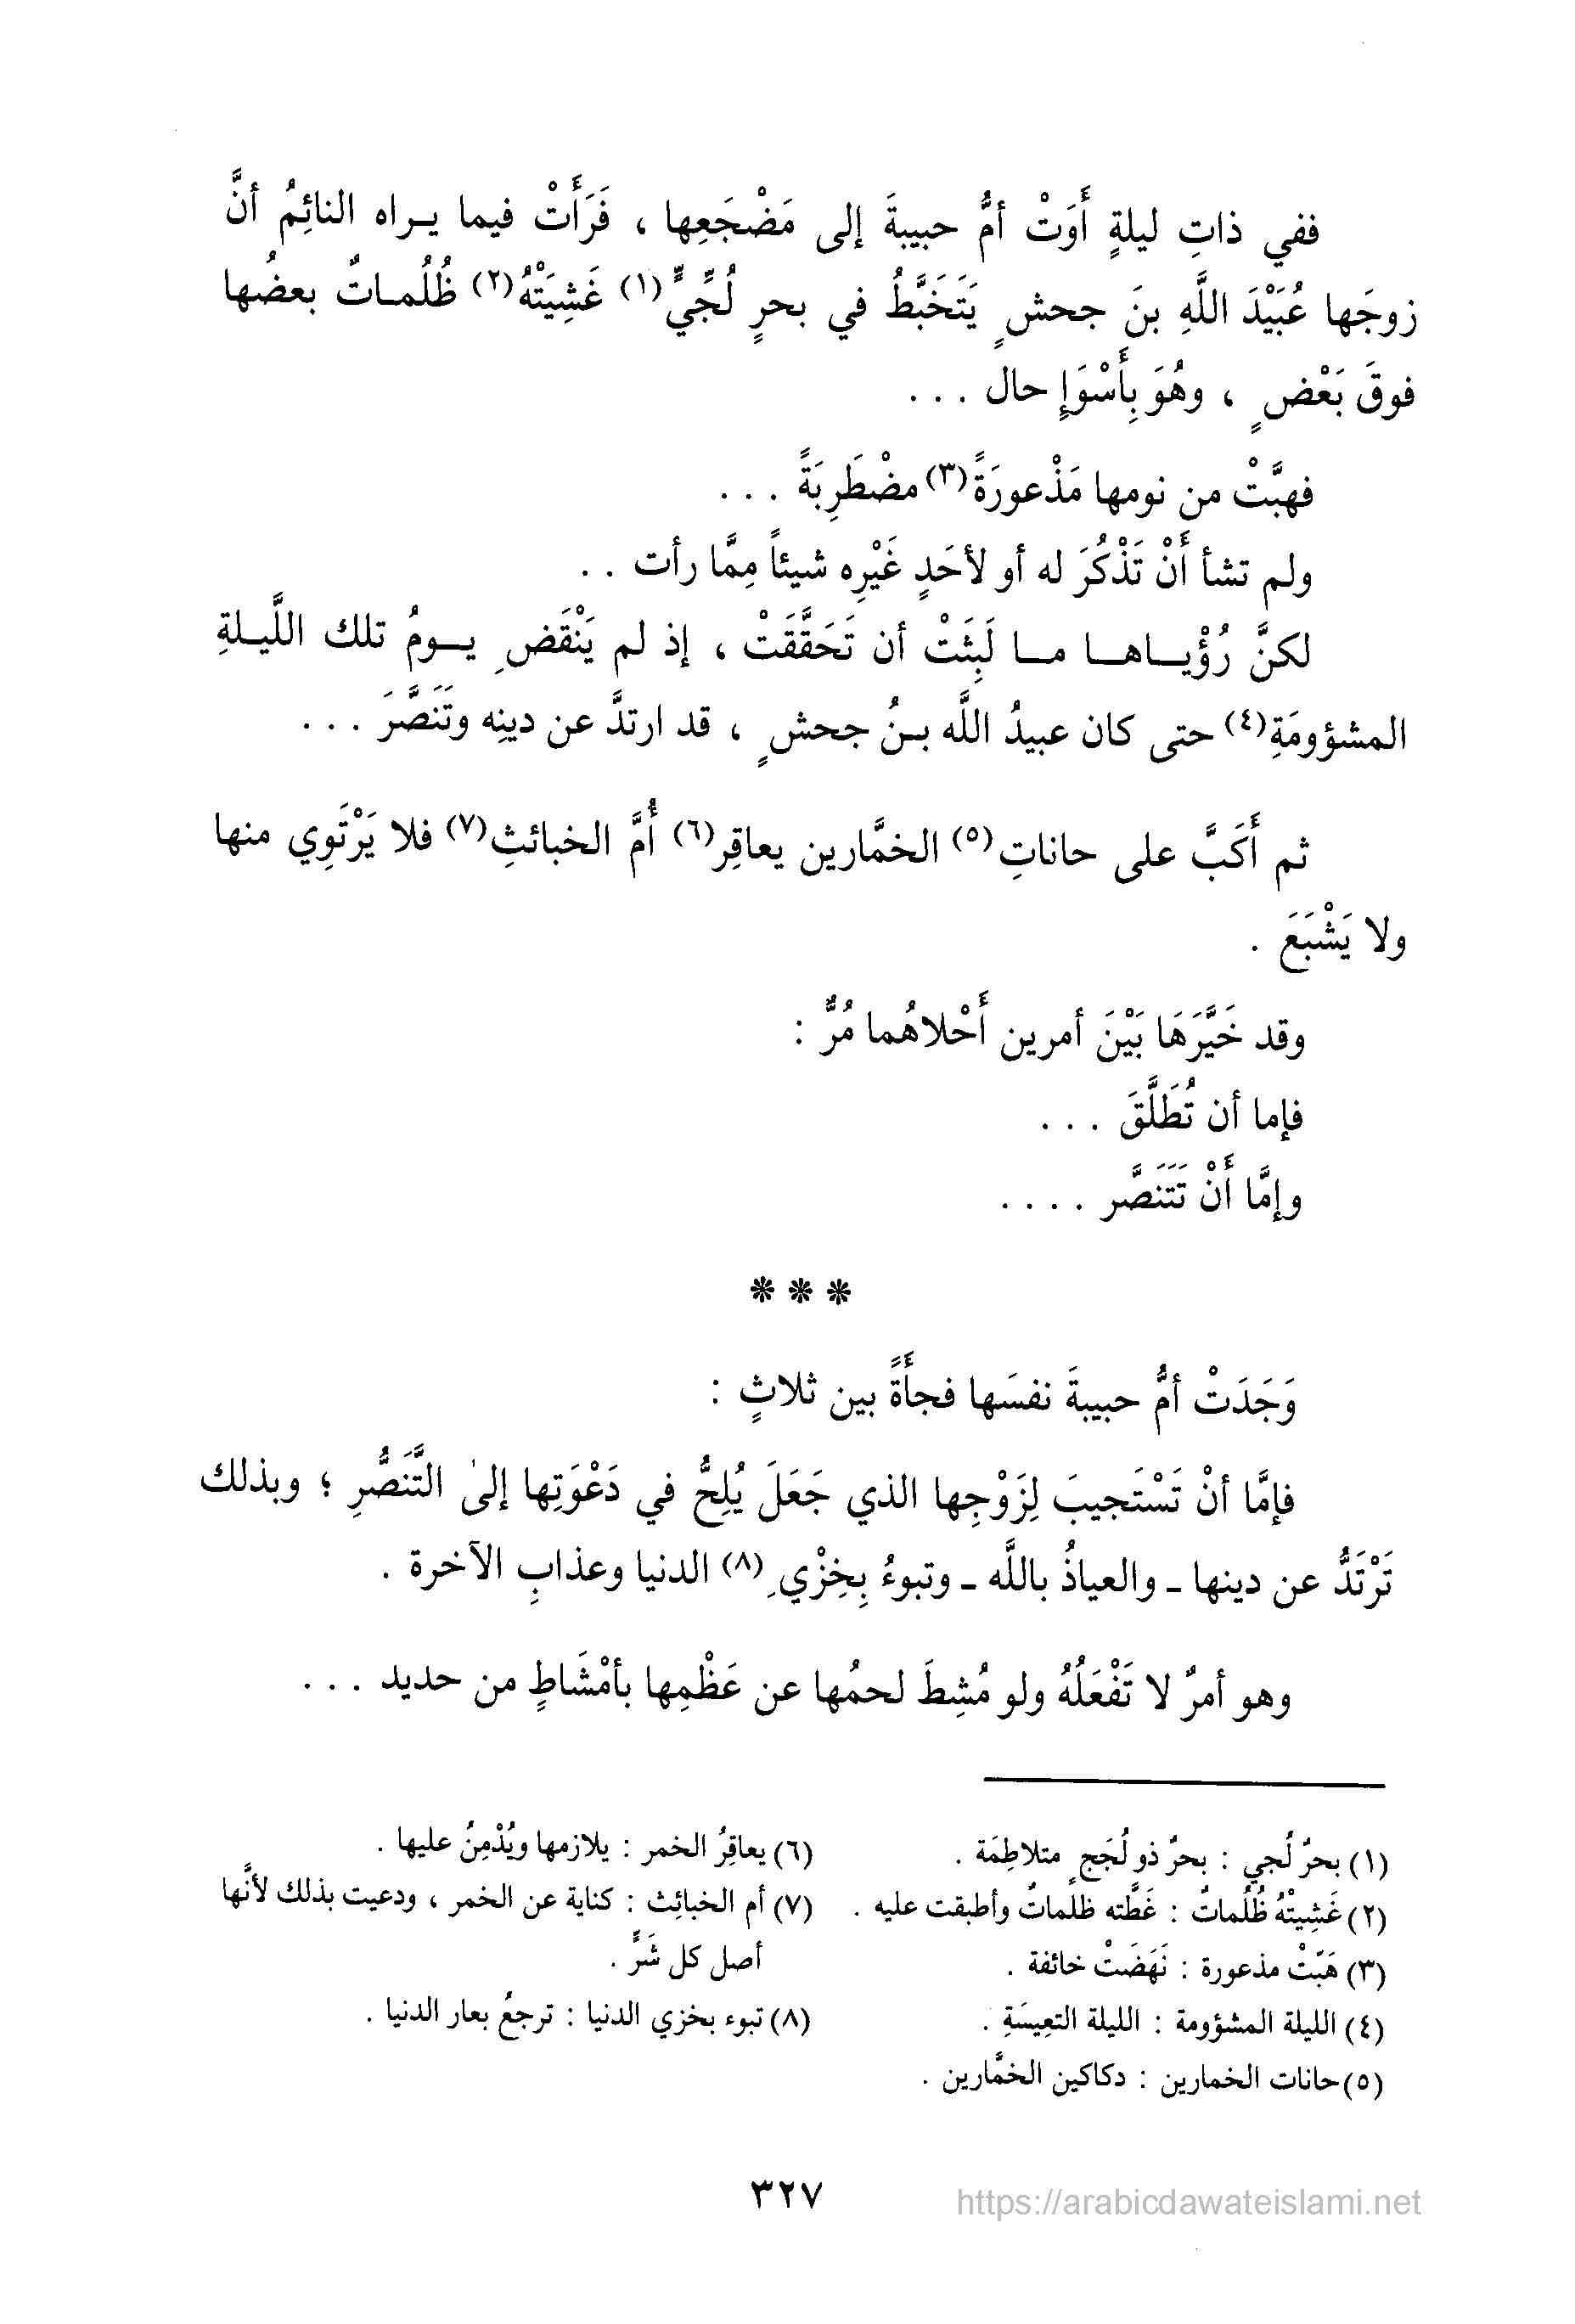 ففي ذاتِ ليلةٍ أَوَتْ أمُّ حبيبةَ إلى مَضْجَعِها ، فَرَأَتْ فيما يـراه النائِمُ أنَّ
زوجَها عُبَيْدَ اللَّهِ بنَ جحشٍ يَتَخَبَّطُ في بحرٍ لُجِّيٍّ(١) غَشِيَتْهُ(٢) ظُلُمـاتٌ بعضُها
فوقَ بَعْضٍ ، وهُوَ بِأَسْوَإِ حال . . .
فهبَّتْ من نومها مَذْعورَةً(٣) مضْطَرِبَةً . . .
ولم تشأ أَنْ تَذْكُرَ له أو لأحَدٍ غَيْرِه شيئاً مِمَّا رأت . .
لكنَّ رُؤْيـاهـا مـا لَبِثَتْ أن تَحَقَّقَتْ ، إذ لم يَنْقَضِ يـومُ تلك اللَّيـلةِ
المشؤومَةِ(٤) حتى كان عبيدُ اللَّه بـنُ جحشٍ ، قد ارتدَّ عن دينِه وتَنَصَّرَ . . .
ثم أَكَبَّ على حاناتِ(٥) الخمَّارين يعاقِر(٦) أُمَّ الخبائثِ(٧) فلا يَرْتَوِي منها
ولا يَشْبَعَ .
وقد خَيَّرَهَا بَيْنَ أمرين أَحْلاهُما مُرٌّ :
فإما أن تُطَلَّقَ . . .
وإمَّا أَنْ تَتَنَصَّر . . . .
* * *
وَجَدَتْ أمُّ حبيبةَ نفسَها فجأَةً بين ثلاثٍ :
فإمَّا أنْ تَسْتَجيبَ لِزَوْجِها الذي جَعَلَ يُلِحُّ في دَعْوَتِها إلىٰ التَّنَصُّرِ ؛ وبذلك
تَرْتَدُّ عن دينها ـ والعياذُ باللَّه ـ وتبوءُ بِخِزْيِ(٨) الدنيا وعذابِ الآخرة .
وهو أمرٌ لا تَفْعَلُهُ ولو مُشِطَ لحمُها عن عَظْمِها بأمْشَاطٍ من حديد . . .
(١) بحرٌ لُجي : بحرٌ ذو لُجَجٍ متلاطِمَة .
(٢) غَشِيتْهُ ظُلُماتٌ : غَطَّته ظلماتٌ وأطبقت عليه .
(٣) هَبّتْ مذعورة : نَهَضَتْ خائفة .
(٤) الليلة المشؤومة : الليلة التعِيسَةِ .
(٥) حانات الخمارين : دكاكين الخمَّارين .
(٦) يعاقِرُ الخمر : يلازمها ويُدْمِنُ عليها .
(٧) أم الخبائِث : كناية عن الخمر ، ودعيت بذلك لأنَّها
أصل كل شَرٍّ .
(٨) تبوء بخزي الدنيا : ترجعُ بعار الدنيا .
٣٢٧
https://arabicdawateislami.net